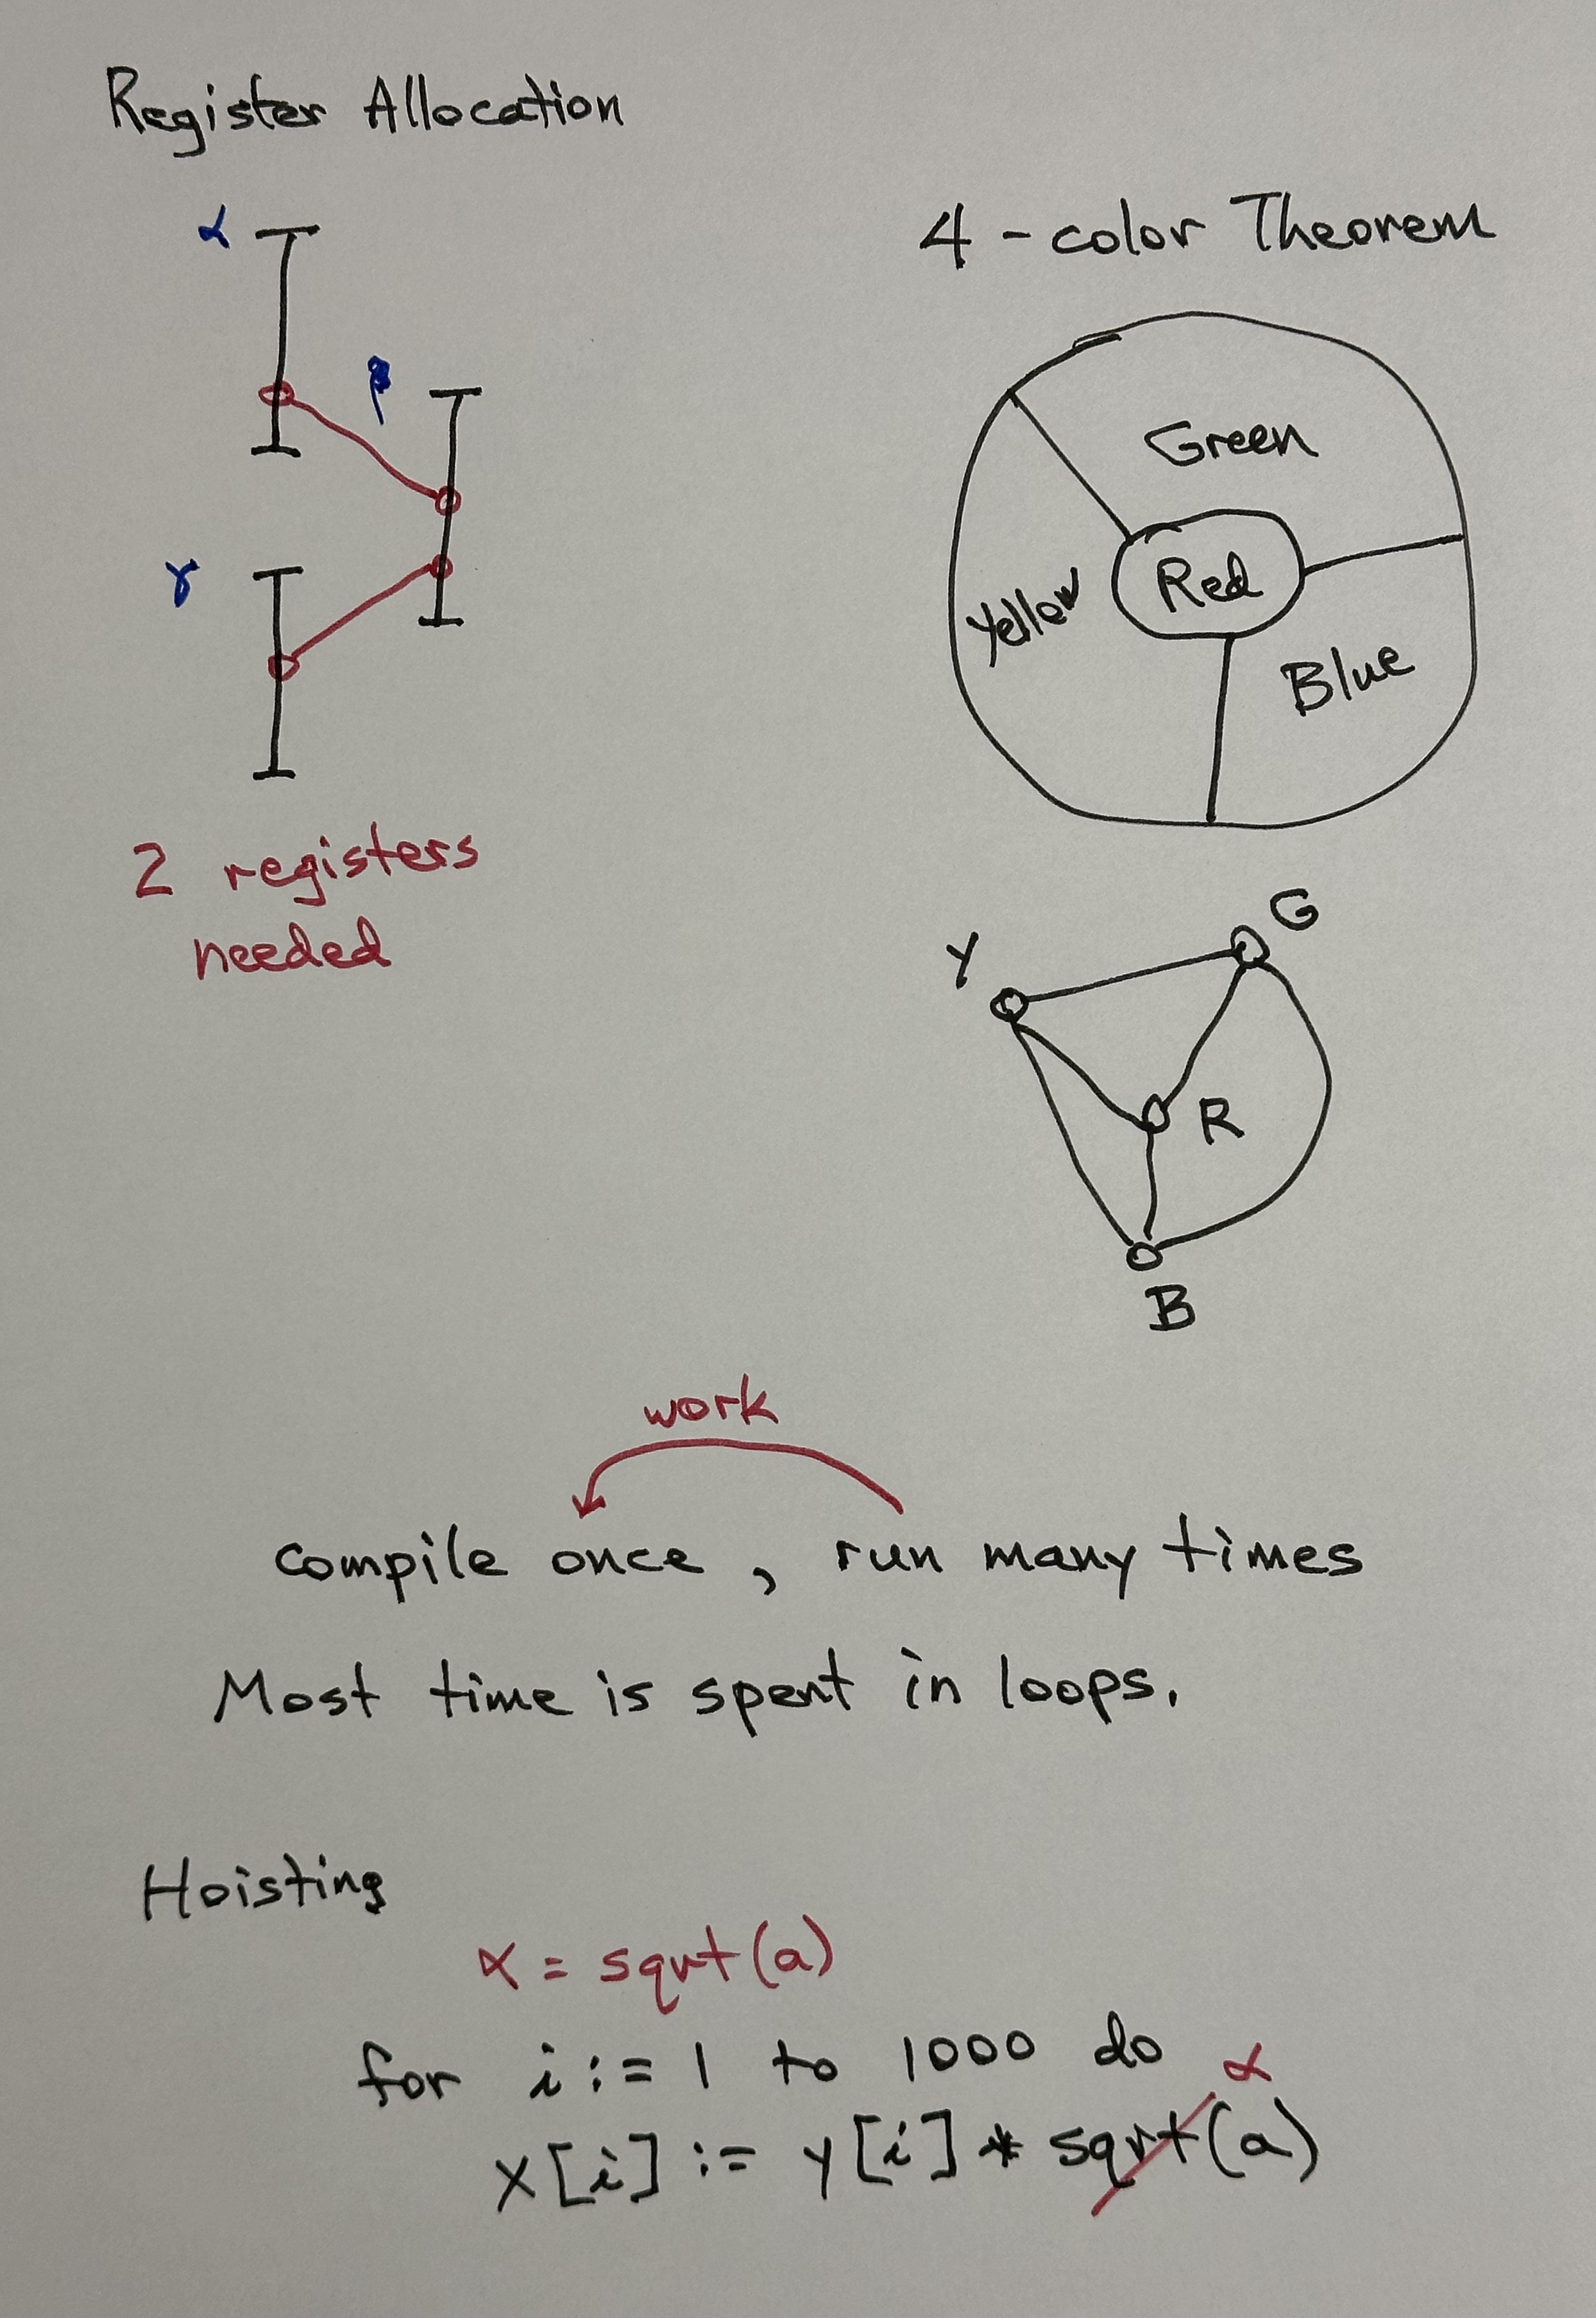 Register Allocation
α
β
γ
2 registers
needed
4 - color Theorem
Green
Red
Yellow
Blue
G
Y
R
B
work
compile once, run many times
Most time is spent in loops.
Hoisting
α = sqrt(a)
for i := 1 to 1000 do
α
x[i] := y[i] * sqrt(a)